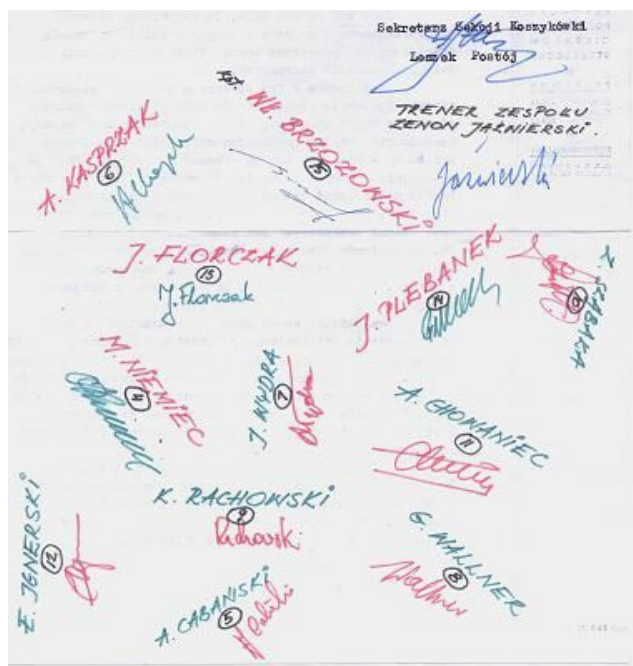 Sekretarz Sekcji Koszykówki
Leszek Postój
TRENER ZESPOŁU
ZENON JAŹNIERSKI.
Jaźnierski
A. KASPRZAK
6
WŁ. BRZOZOWSKI
15
J. FLORCZAK
15
J. Florczak
J. PLEBANEK
14
M. NIEMIEC
J. WYDRA
7
A. CHOWANIEC
11
K. RACHOWSKI
9
Rachowski
G. WALLNER
8
Wallner
12
A. CABANISKI
5